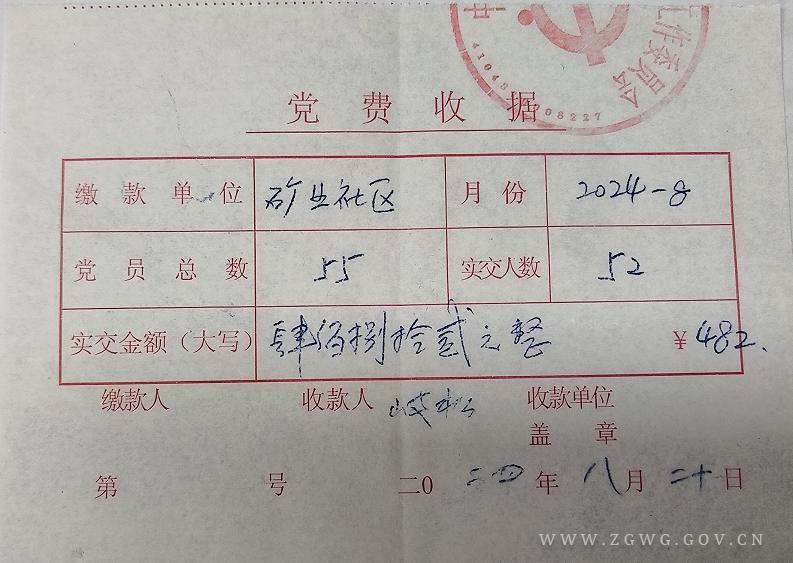 工作委员会
41048 08227
党费收据
缴款单位 矿业社区 月份 2024-8
党员总数 55 实交人数 52
实交金额（大写） 肆佰捌拾贰元整 ¥482.
缴款人 收款人 收款单位
盖章
第 号 二0二四年八月二十日
WWW.ZGWG.GOV.CN